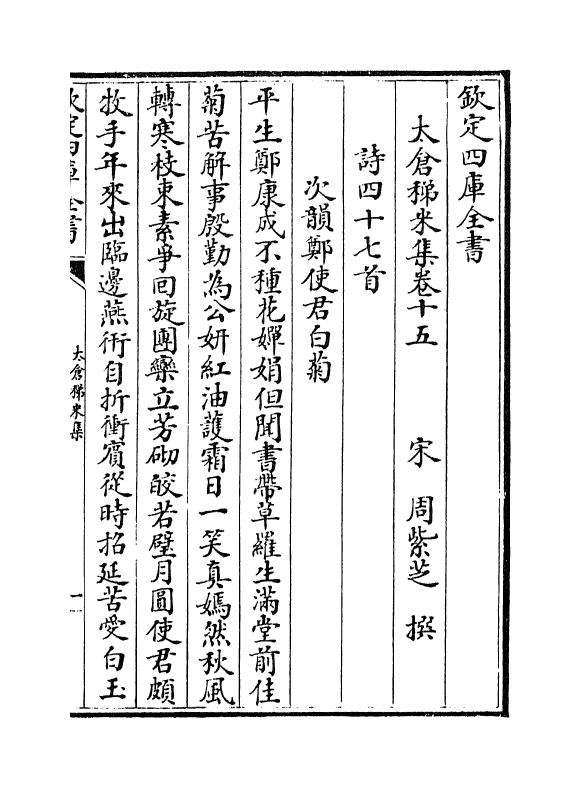 欽定四庫全書
太倉稊米集卷十五
宋 周紫芝 撰
詩四十七首
次韻鄭使君白菊
平生鄭康成不種花嬋娟但聞書帶草羅生滿堂前佳
菊苦解事殷勤為公妍紅油護霜日一笑真嫣然秋風
轉寒枝束素爭回旋團欒立芳砌皎若璧月圓使君頗
牧手年來出臨邊燕衎自折衝賓從時招延苦愛白玉
欽定四庫全書
太倉稊米集
一